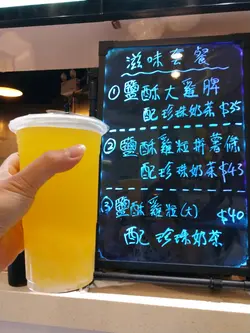 滋味套餐
① 鹽酥大雞脾
配珍珠奶茶$35
② 鹽酥雞粒丼薯條
配珍珠奶茶$43
③ 鹽酥雞粒(大) $40
配 珍珠奶茶